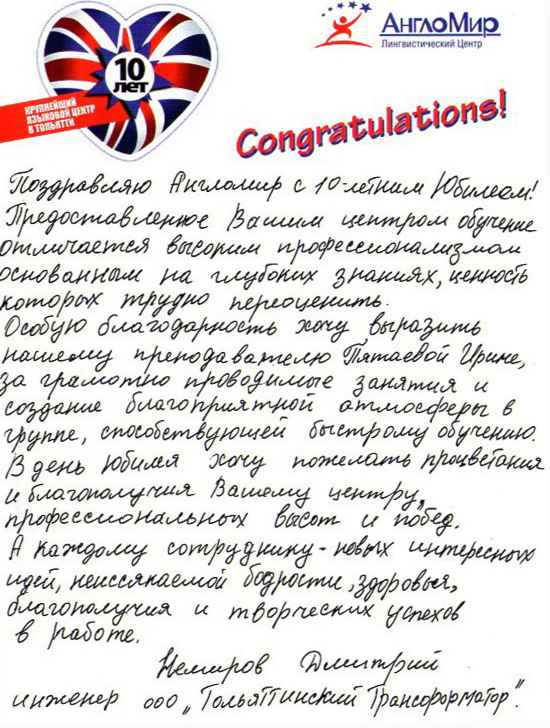 10
ЛЕТ
КРУПНЕЙШИЙ
ЯЗЫКОВОЙ ЦЕНТР
В ТОЛЬЯТТИ
АнглоМир
Лингвистический Центр
Congratulations!
Поздравляю Англомир с 10-летним Юбилеем!
Предоставленное Вашим центром обучение
отличается высоким профессионализмом
основанным на глубоких знаниях, ценность
которых трудно переоценить.
Особую благодарность хочу выразить
нашему преподавателю Пятаевой Ирине,
за грамотно проводимые занятия и
создание благоприятной атмосферы в
группе, способствующей быстрому обучению.
В день юбилея хочу пожелать процветания
и благополучия Вашему центру,
профессиональных высот и побед.
А каждому сотруднику - новых интересных
идей, неиссякаемой бодрости, здоровья,
благополучия и творческих успехов
в работе.
Немиров Дмитрий
инженер ооо „Тольяттинский Трансформатор".